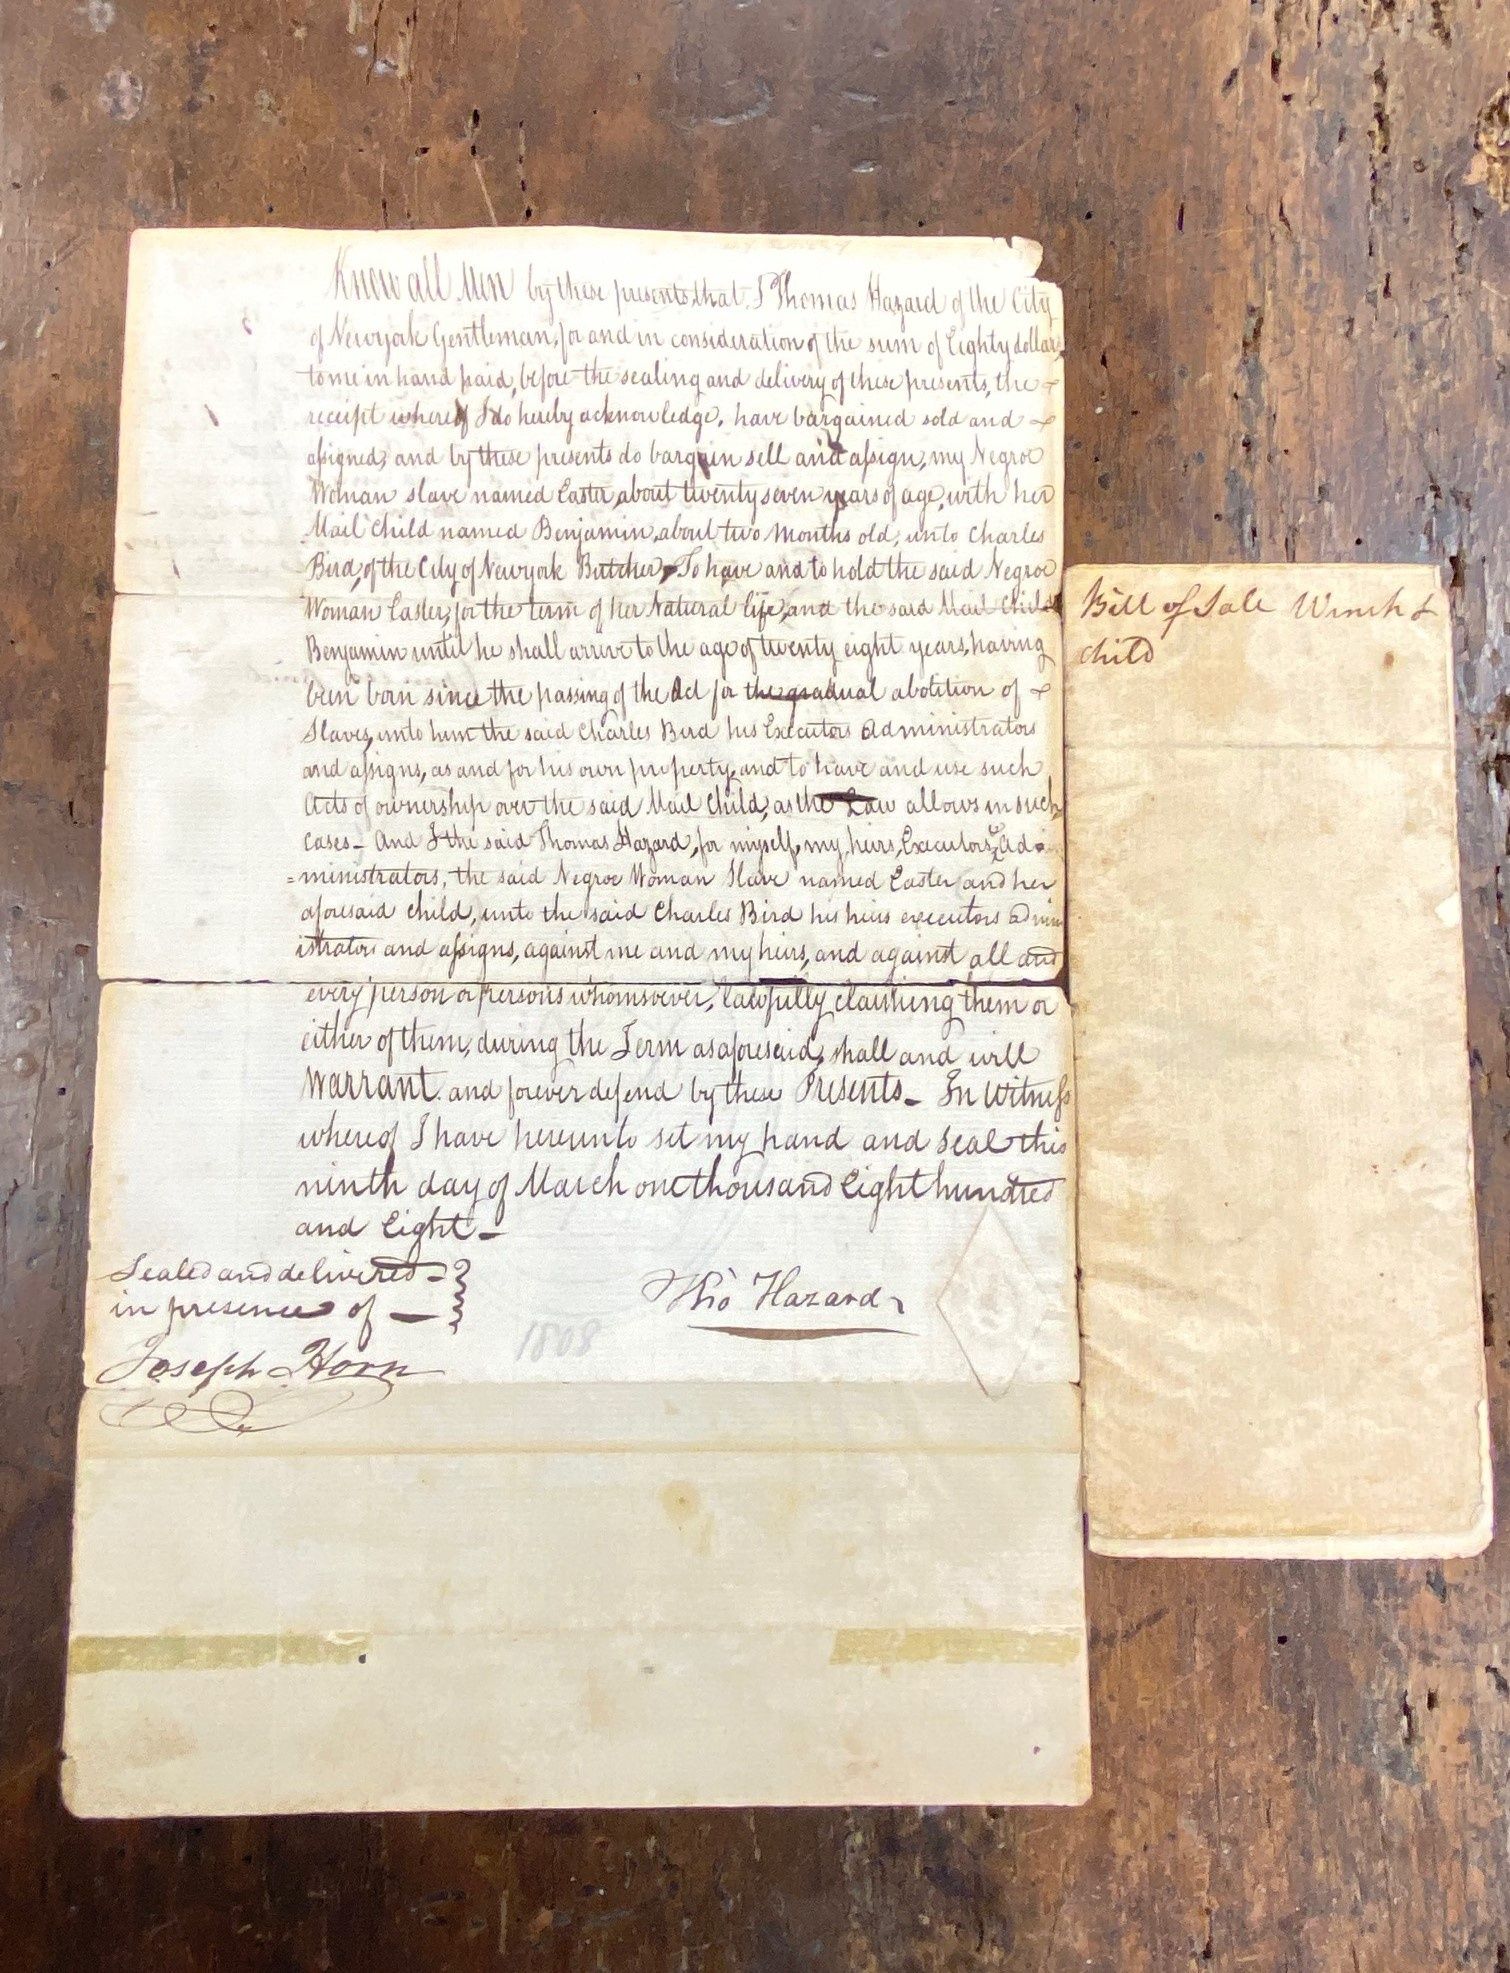 Know all Men by these presents, that I Thomas Hazard of the City
of Newyork Gentleman, for and in consideration of the sum of Eighty dollars
to me in hand paid, before the sealing and delivery of these presents, the
receipt whereof I do hereby acknowledge, have bargained sold and
assigned, and by these presents do bargain sell and assign, my Negroe
Woman slave named Easter, about twenty seven years of age, with her
Mail Child named Benjamin, about two months old, unto Charles
Bird, of the City of Newyork Butcher, To have and to hold the said Negroe
Woman Easter, for the term of her Natural life, and the said Mail Child
Benjamin until he shall arrive to the age of twenty eight years, having
been born since the passing of the Act for the gradual abolition of
Slaves, unto him the said Charles Bird his Executors Administrators
and assigns, as and for his own property, and to have and use such
Acts of ownership over the said Mail Child, as the Law allows in such
Cases - And I the said Thomas Hazard, for myself, my heirs, Executors, Ad
=ministrators, the said Negroe Woman Slave named Easter and her
aforesaid child, unto the said Charles Bird his heirs executors admin
istrators and assigns, against me and my heirs, and against all and
every person or persons whomsoever, lawfully claiming them or
either of them, during the Term as aforesaid, shall and will
Warrant and forever defend by these Presents - In Witness
whereof I have hereunto set my hand and Seal this
ninth day of March one thousand Eight hundred
and Eight -
Sealed and delivered
in presence of
Thó Hazard
1808
Joseph Horn
Bill of Sale Winch &
child